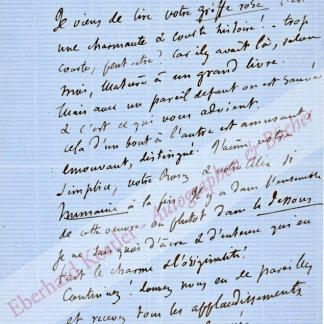 Je viens de lire votre griffe rose. C'est
une charmante & courte histoire! - trop
courte, peut-être? Car il y avait là, selon
moi, matière à un grand livre.
Mais avec un pareil défaut on est sauvé
& c'est ce qui vous advient.
Cela d'un bout à l'autre est amusant,
émouvant, distingué. J'aime votre
Simplice, votre Rose, & votre si
humaine à la fin. Il y a dans l'ensemble
de cette oeuvre ou plutôt dans le dessous
je ne sais quoi d'âcre & d'intense qui en
fait le charme & l'originalité!
Continuez! Donnez nous en de pareilles
et recevez tous les applaudissements
Eberhard Köstler - Autographen & Bücher